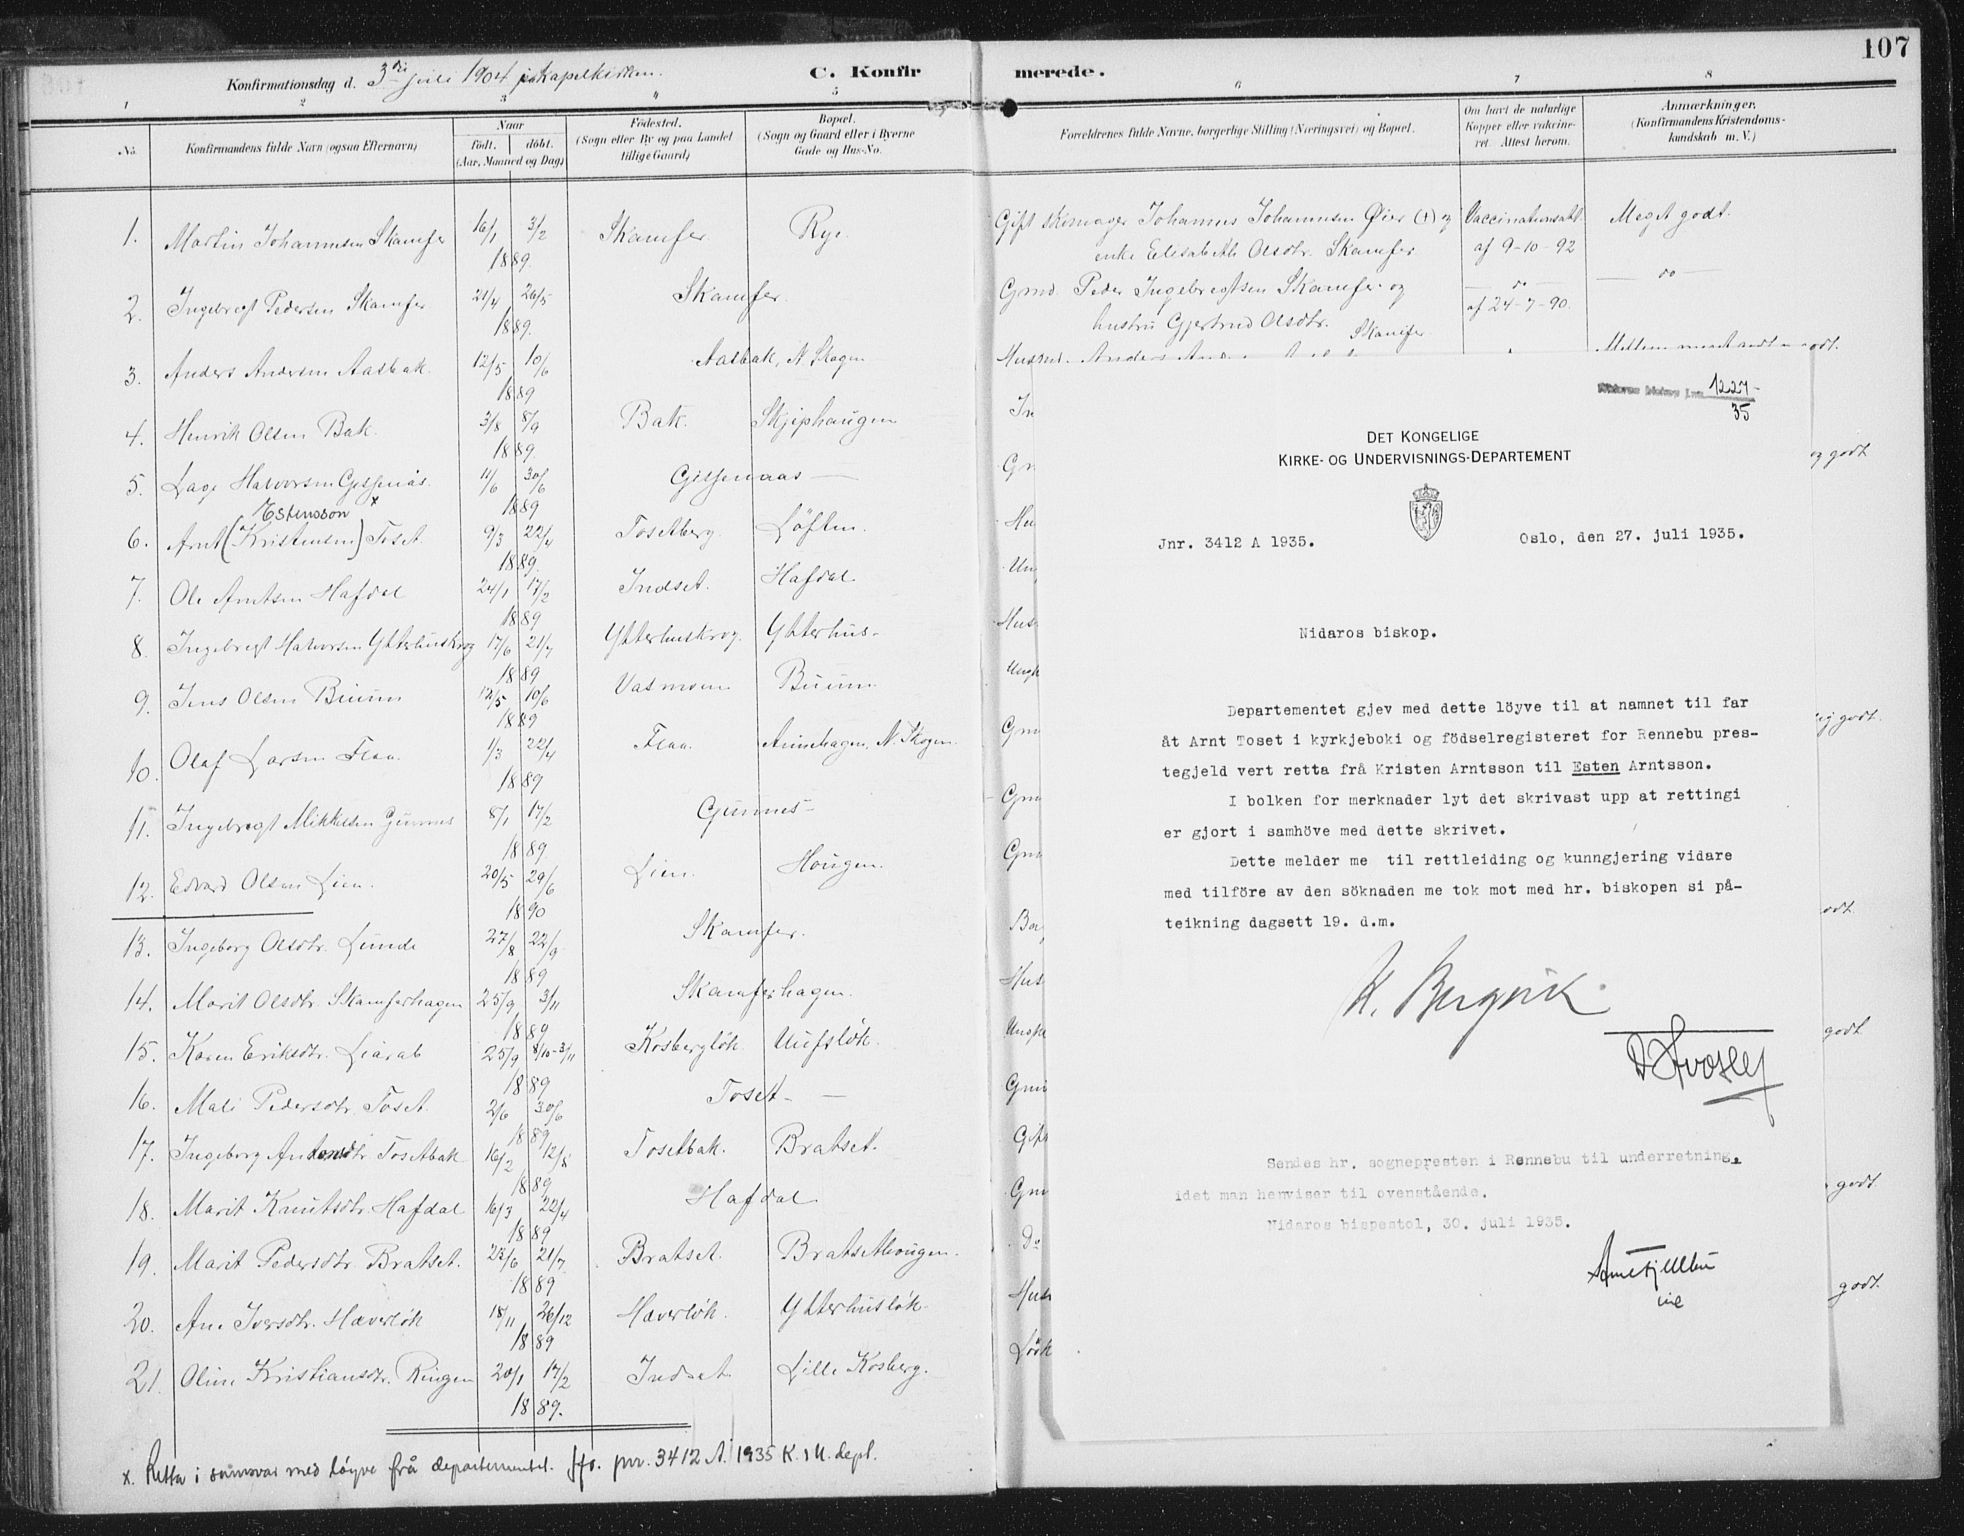 107
Konfirmationsdag d. 3die juli 1904 i kapelkirken.
C. Konfirmerede.
1 2 3 4 5 6 7 8
No. Konfirmandens fulde Navn (ogsaa Efternavn)
Naar født. døbt. (Aar, Maaned og Dag)
Fødested. (Sogn eller By og paa Landet tillige Gaard)
Bopæl. (Sogn og Gaard eller i Byerne Gade og Hus-No.
Forældrenes fulde Navne, borgerlige Stilling (Næringsvei) og Bopæl.
Om havt de naturlige Kopper eller vaccineret. Attest herom.
Anmærkninger. (Konfirmandens Kristendomskundskab m. V.)
1. Martin Johannesen Skamfer 16/1 3/2 1889. Skamfer Rye
Gift skomager Johannes Johannesen Øier (†) og Vaccinationsatt. Meget godt.
enke Elisabeth Olsdtr. Skamfer af 9-10-92
2. Ingebrigt Pedersen Skamfer 21/4 26/5 1889. Skamfer.
Grmd. Peder Ingebrigtsen Skamfer og — do — — do —
hustru Gjertrud Olsdtr. Skamfer. af 24-7-90.
3. Anders Andersen Aasbak. 12/5 10/6 1889 Aasbak, N. Skogen
4. Henrik Olsen Bak. 3/8 8/9 1889. Bak. Skjephaugen
5. Lage Halvorsen Gisnaas. 11/6 30/6 1889 Gisnaas —
Estensson x
6. Arnt (Kristensen) Toset. 9/3 22/4 1889. Tosetberg. Løften.
7. Ole Arntsen Hafdal 24/1 17/2 1889 Indset. Hafdal
8. Ingebrigt Halvorsen Ytterhuskrog 17/6 21/7 1889 Ytterhuskrog. Ytterhus-
9. Jens Olsen Buum 12/5 10/6 1889 Vasmoen Buum
10. Olaf Larsen Flaa. 1/3 22/4 1889 Flaa. N. Skogen.
11. Ingebrigt Mikkelsen Gunnes 8/1 17/2 1889. Gunnes-
12. Edvard Olsen Lien. 20/5 29/6 1890 Lien. Hougen.
13. Ingeborg Olsdtr. Lunde 27/8 22/9 1889 Skamfer.
14. Marit Olsdtr. Skamferhagen 25/9 3/11 1889 Skamferhagen.
15. Karen Eriksdtr. Liarab 25/9 8/10-3/11 1889 Kosbergløk
16. Mali Pedersdtr. Toset. 2/6 30/6 1889 Toset- —
17. Ingeborg Tosetbak 16/2 1889 Tosetbak. Bratset.
18. Marit Knutsdtr. Hafdal 16/3 22/4 1889 Hafdal
19. Marit Pedersdtr. Bratset. 23/6 21/7 1889 Bratset. Bratsethougen.
20. Ane Iversdtr. Hæverløk 18/11 26/12 1889 Hæverløk. Ytterhusløk.
21. Oline Kristiansdtr. Ringen 20/1 17/2 1889. Indset. Lille Kosberg.
x. Retta i samsvar med løyve frå departementet. jfr. jnr. 3412 A. 1935 K. & U. dept.
1227 35
DET KONGELIGE
KIRKE- OG UNDERVISNINGS-DEPARTEMENT
Jnr. 3412 A 1935. Oslo, den 27. juli 1935.
Nidaros biskop.
Departementet gjev med dette löyve til at namnet til far
åt Arnt Toset i kyrkjeboki og födselregisteret for Rennebu pres-
tegjeld vert retta frå Kristen Arntsson til Esten Arntsson.
I bolken for merknader lyt det skrivast upp at rettingi
er gjort i samhöve med dette skrivet.
Dette melder me til rettleiding og kunngjering vidare
med tilföre av den söknaden me tok mot med hr. biskopen si på-
teikning dagsett 19. d.m.
K. Bergsvik
Sendes hr. sognepresten i Rennebu til underretning,
idet man henviser til ovenstående.
Nidaros bispestol, 30. juli 1935.
Arne Fjellbu